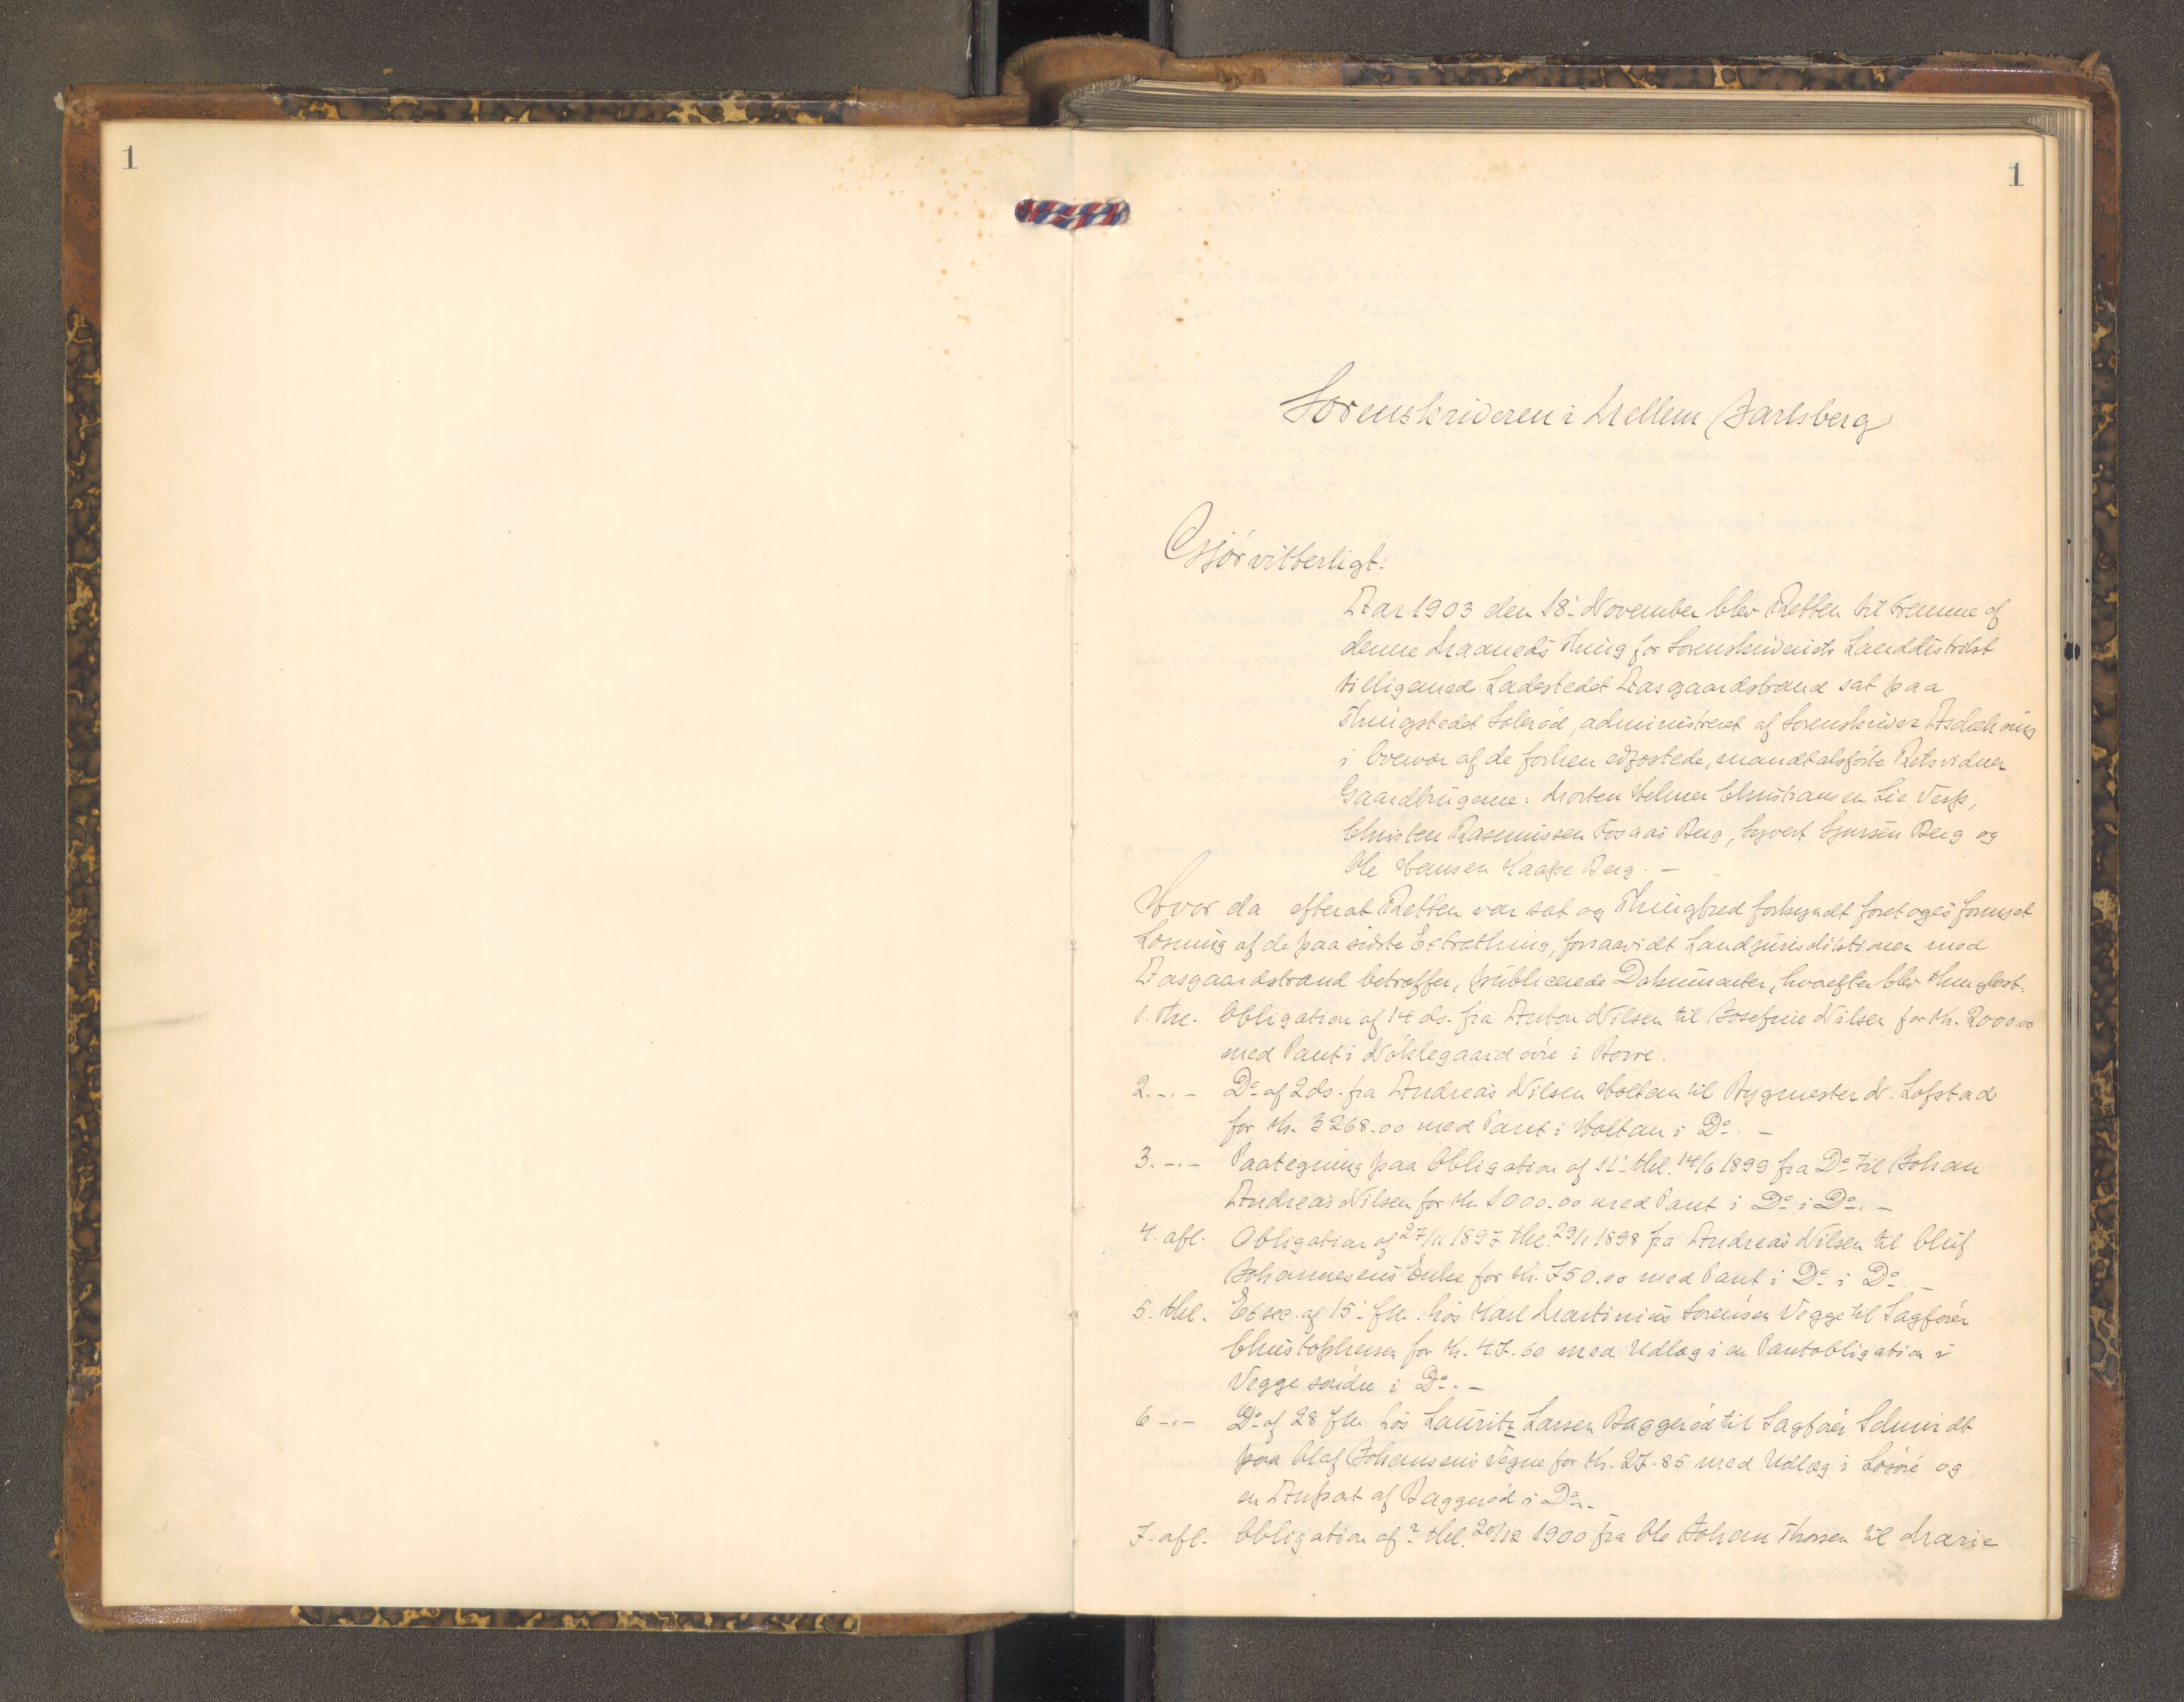 1
1
Sorenskriveren i Mellem Jarlsberg
Gjør vitterligt:
Aar 1903 den 18: November blev Retten til Fremme af
denne Maaneds Thing for Sorenskriveriets Landdistrikt
tilligemed Ladestedet Aasgaardstrand sat paa
Thingstedet Solerød, administreret af Sorenskriver Aschehoug
i Overvær af de forhen edfæstede, mandtalsførte Retsvidner
Gaardbrugerne: Morten Helmer Christiansen Lie
Christen Rasmussen Berg, Syvert Sjursen Berg og
Ole Hansen Berg. –
Hvor da efterat Retten var sat og Thingfred forkyndt foretoges fornyet
Læsning af de paa sidste Extrathing, forsaavidt Landjurisdiktionen med
Aasgaardstrand betræffer, publicerede Dokumenter, hvorefter blev thinglæst:
1. thl. Obligation af 14 ds. fra Anton Nilsen til Josefine Nilsen for Kr. 2000.00
med Pant i Nøklegaard øvre i Borre.
2. -.- Do af 2 ds. fra Andreas Nilsen Holtan til Bygmester N. Lofstad
for Kr. 3268.00 med Pant i Holtan i Do. –
3. -.- Paategning paa Obligation af 11: thl. 14/6 1899 fra Do til Johan
Andreas Nilsen for Kr. 1000.00 med Pant i Do i Do. –
4. afl. Obligation af 27/11 1897 thl. 29/1 1898 fra Andreas Nilsen til Oluf
Johannesens Enke for Kr. 750.00 med Pant i Do i Do. –
5. thl. Exsec. af 15: f.M. hos Karl Martinius Sørensen Vegge til Sagfører
Christophersen for Kr. 47.60 med Udlæg i en Pantobligation i
Vegge søndre i Do. –
6 -.- Do af 28 f.M. hos Lauritz Larsen Baggerød til Sagfører Schmidt
paa Olaf Johansens Vegne for Kr. 27.85 med Udlæg i Løsøre og
en Anpart af Baggerød i Do. –
7. afl. Obligation af ? thl. 20/12 1900 fra Ole Johan Thorsen til Marie